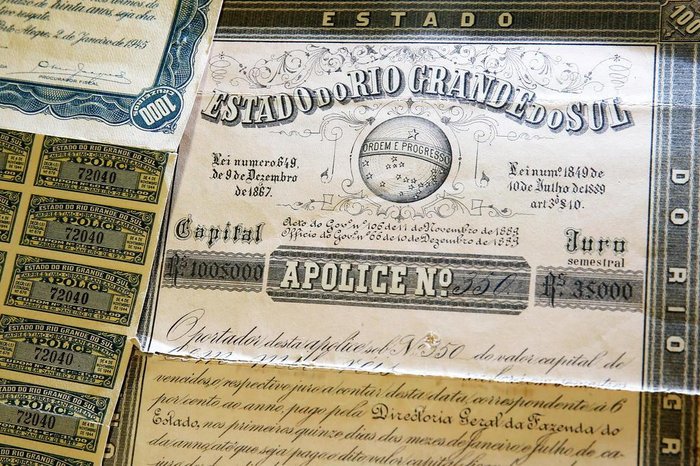 trinta anos, seja dia
resgate.
Alegre, 2 de Janeiro de 1945
PROCURADOR FISCAL
1000
CRUZEIROS
ESTADO DO RIO GRANDE DO SUL
APOLICE
72040
ESTADO DO RIO GRANDE DO SUL
APOLICE
72040
ESTADO DO RIO GRANDE DO SUL
APOLICE
72040
ESTADO DO RIO GRANDE DO SUL
APOLICE
72040
ESTADO DO RIO GRANDE DO SUL
APOLICE
72040
ESTADO
100
ESTADO DO RIO GRANDE DO SUL
ORDEM E PROGRESSO
Lei numero 649,
de 9 de Dezembro
de 1887.
Lei num.º 1849 de
10 de Julho de 1889
art 3º § 10.
Acto do Gov.º nº 106 de 11 de Novembro de 1889
Officio do Gov.º nº 66 de 10 de Dezembro de 1889
Capital
Juro
semestral
Rs. 100$000
APOLICE Nº 350
Rs. 3$000
DO RIO GR
O portador desta apolice sob Nº 350 do valor capital de
cem mil reis
vencidos, e respectivo juro a contar desta data, correspondente a 6
por cento ao anno, pago pela Directoria Geral da Fazenda do
Estado, nos primeiros quinze dias dos mezes de Janeiro e Julho de ca-
da anno, até que seja pago o dito valor capital